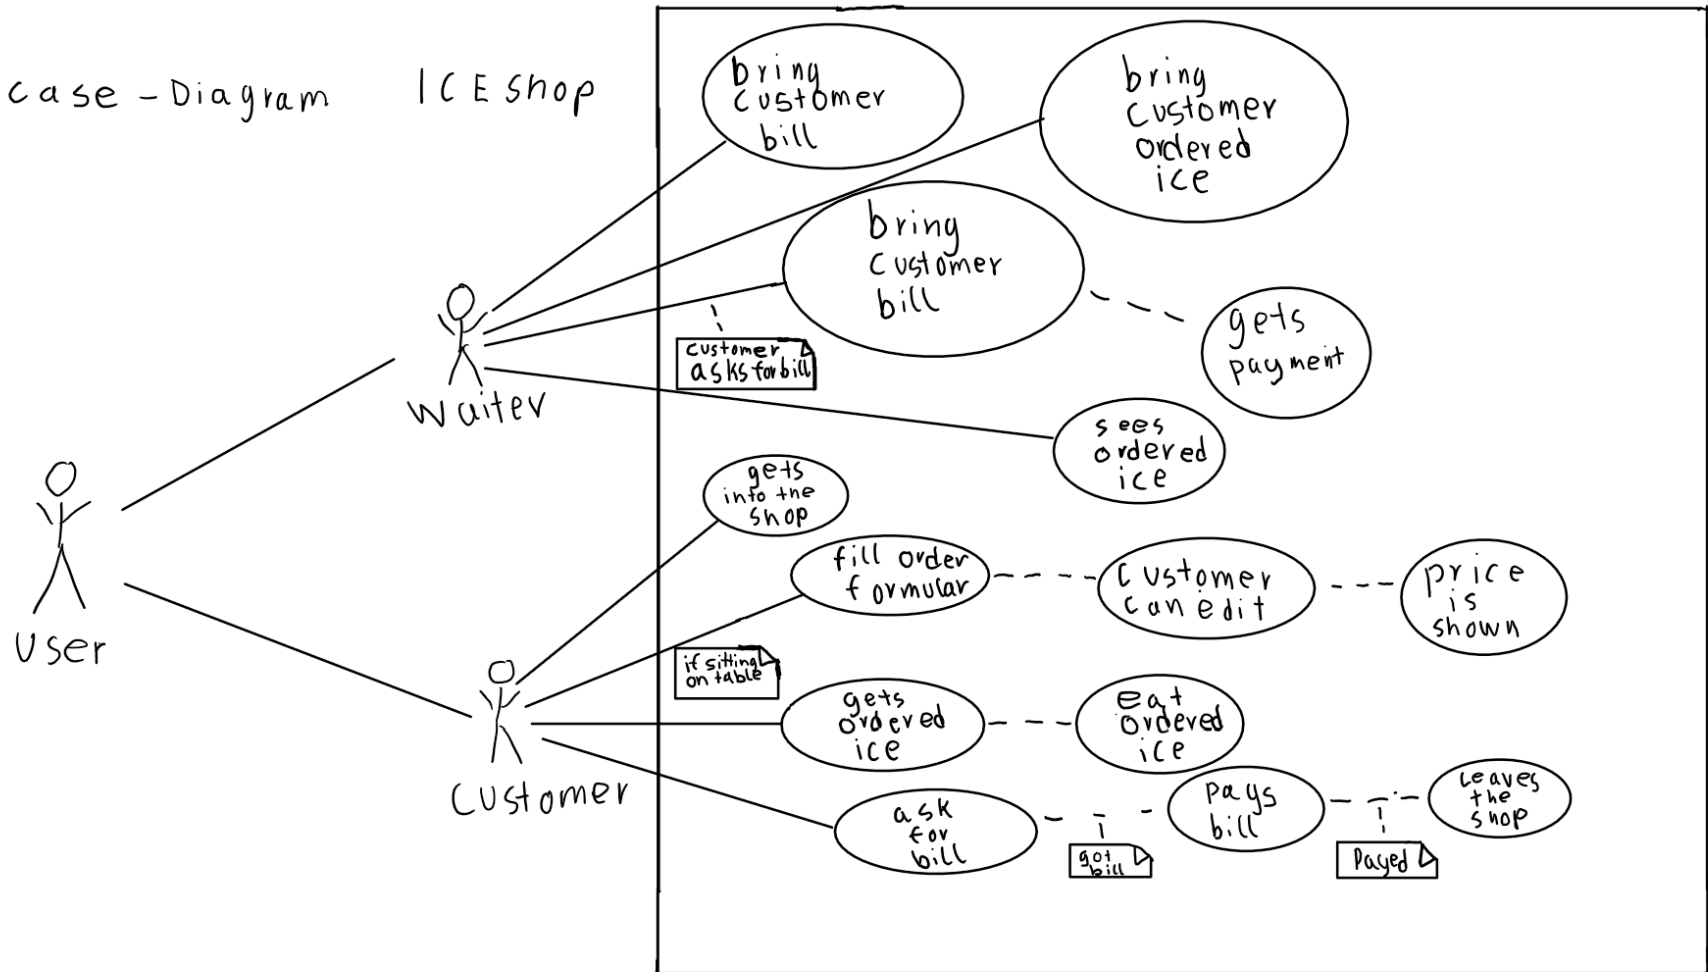 case - Diagram ICEshop
bring
customer
bill
bring
customer
ordered
ice
bring
customer
bill
gets
payment
customer
asks for bill
waiter
sees
ordered
ice
user
gets
into the
shop
fill order
formular
customer
can edit
price
is
shown
if sitting
on table
customer
gets
ordered
ice
eat
ordered
ice
ask
for
bill
got
bill
pays
bill
Payed
Leaves
the
shop